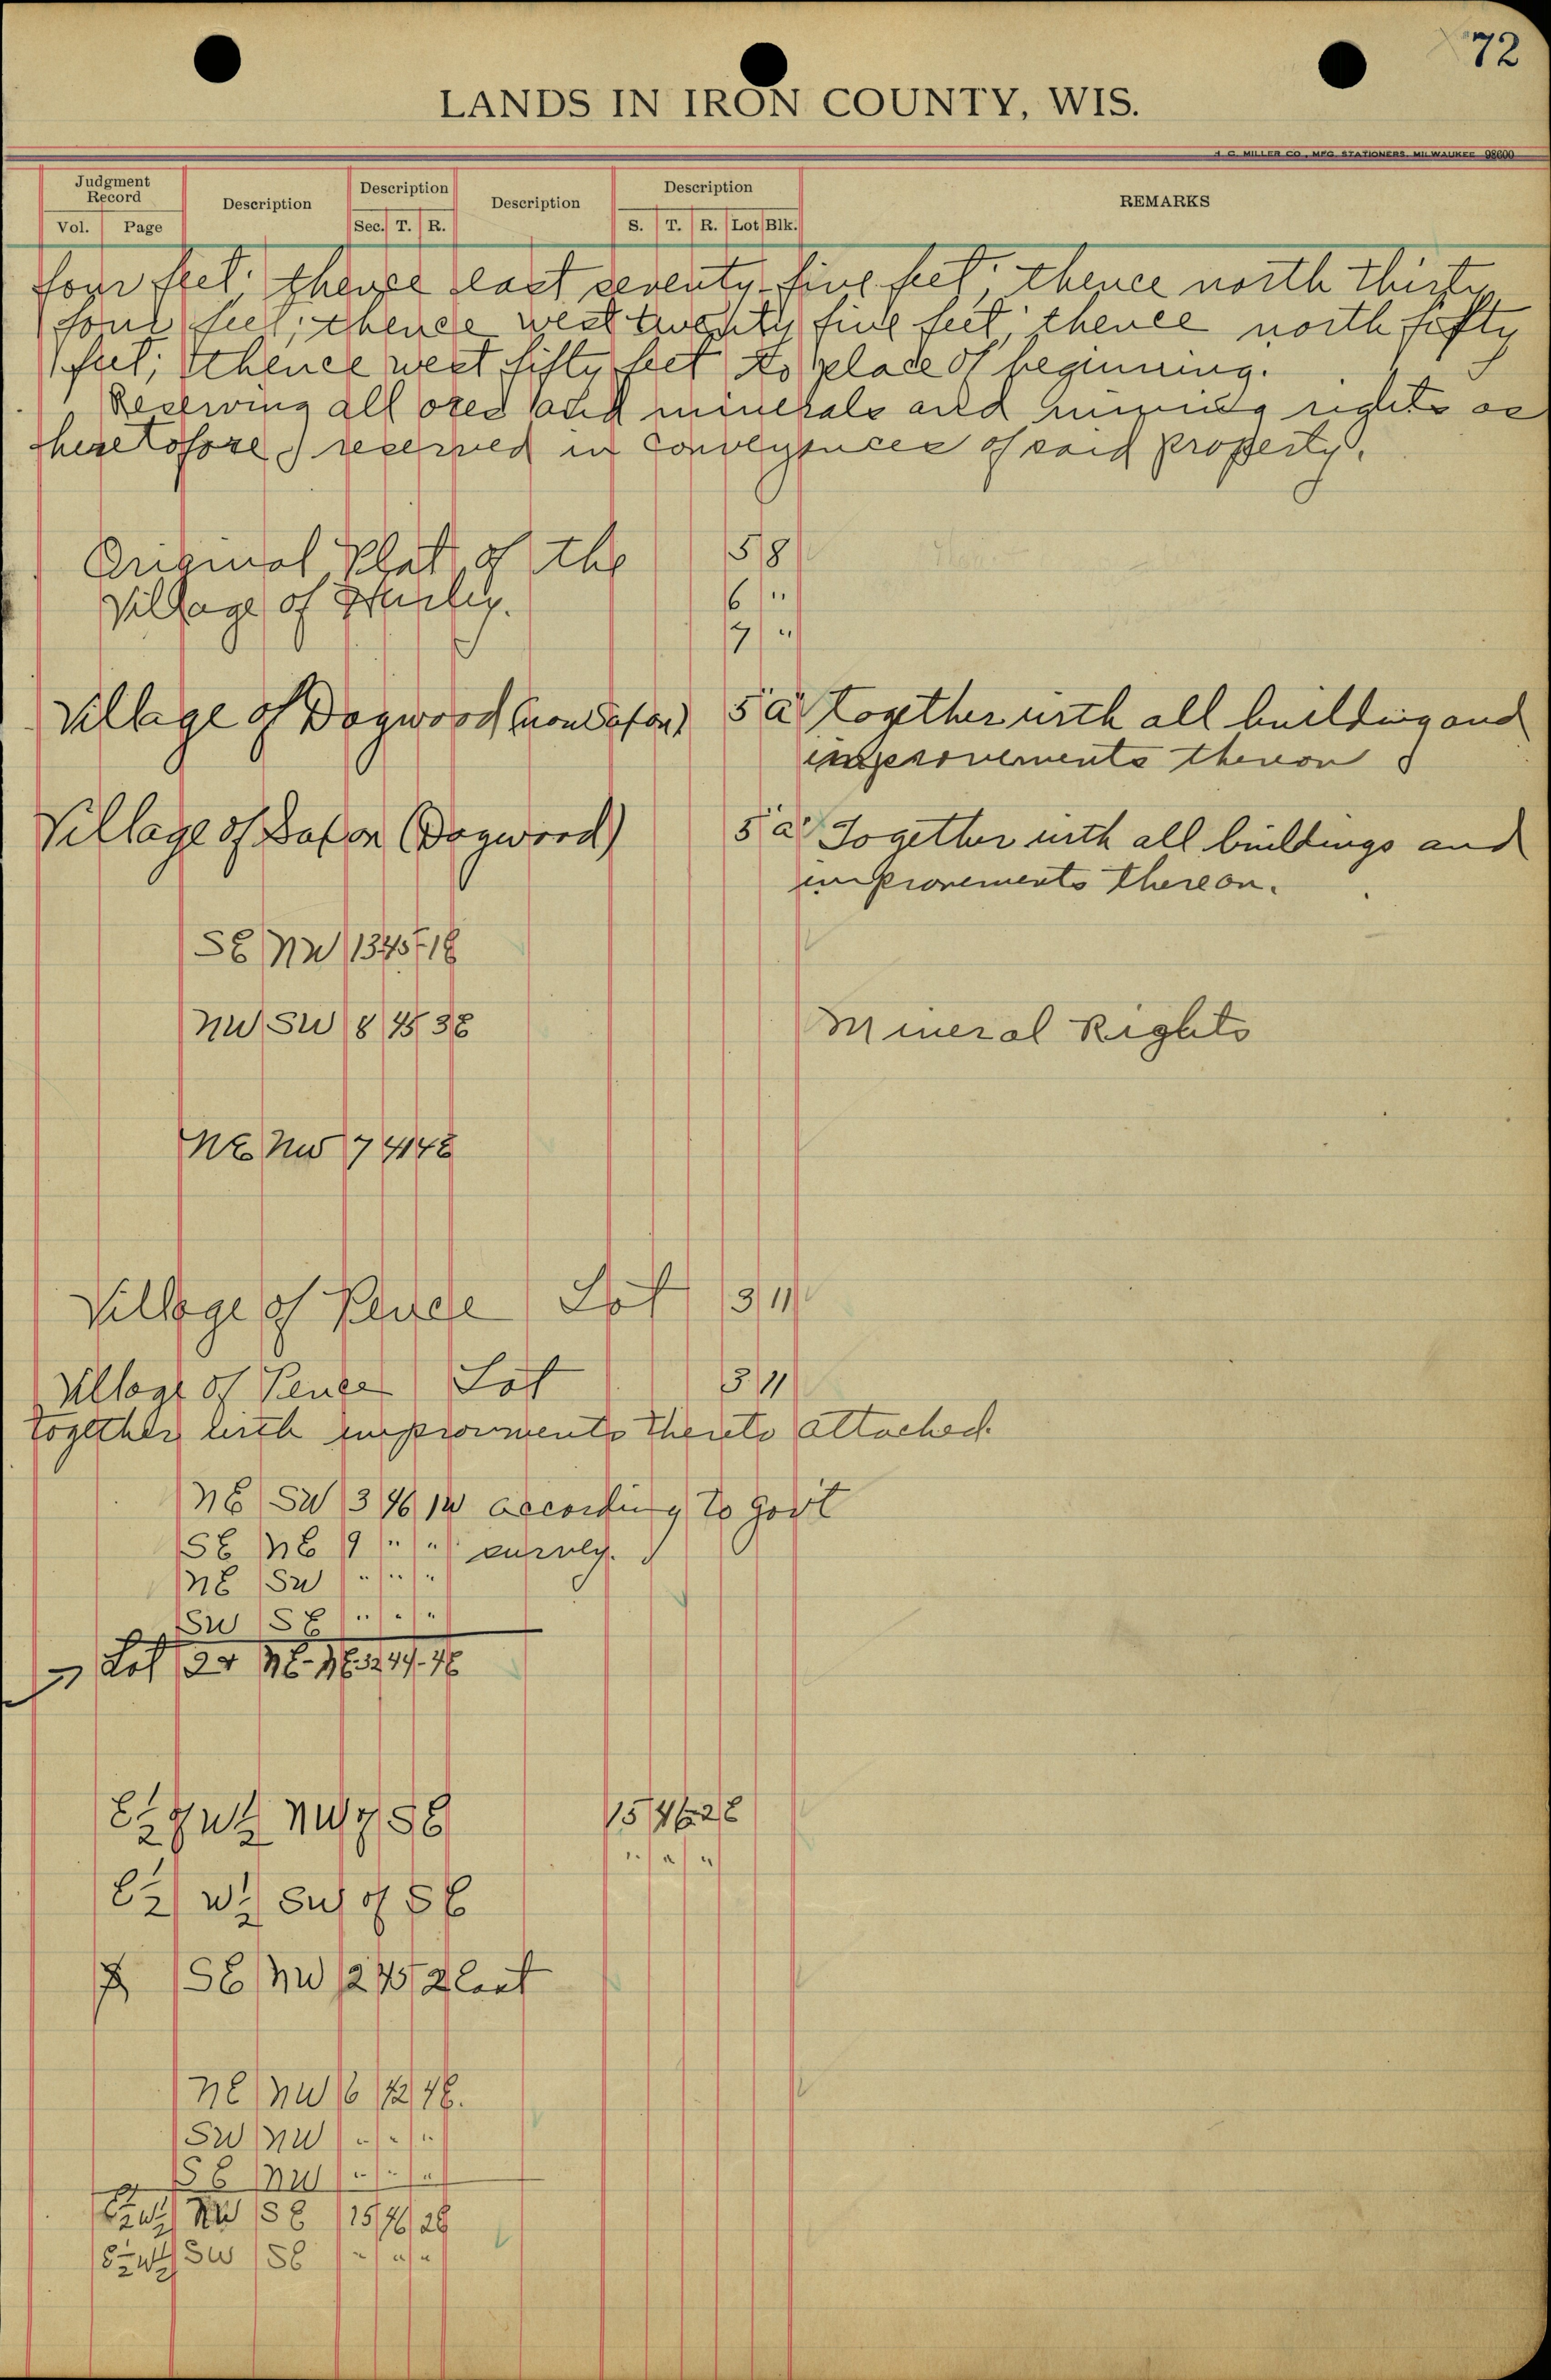 72
LANDS IN IRON COUNTY, WIS.
H. C. MILLER CO., MFG. STATIONERS, MILWAUKEE 98600
Judgment Record
Description
Description
Description
Description
REMARKS
Vol. Page
Sec. T. R.
S. T. R. Lot Blk.
four feet; thence east seventy-five feet; thence north thirty
four feet; thence west twenty five feet; thence north fifty
feet; thence west fifty feet to place of beginning.
Reserving all ores and minerals and mining rights as
heretofore reserved in conveyances of said property.
Original Plat of the 5 8
Village of Hurley. 6 "
7 "
Village of Dogwood 5 a Together with all building and
improvements thereon
Village of Saxon (Dogwood) 5 a Together with all buildings and
improvements thereon.
SE NW 13 45 1 E
NW SW 8 45 3 E
Mineral Rights
NE NW 7 41 4 E
Village of Pence Lot 3 11
Village of Pence Lot 3 11
together with improvments thereto attached.
NE SW 3 46 1W according to Govt
SE NE 9 " " survey.
NE SW " " "
SW SE " " "
Lot
E½ of W½ NW of SE 15 46 2 E
" " "
E½ W½ SW of SE
SE NW 2 45 2 East
NE NW 6 42 4 E.
SW NW " " "
SE NW " " "
E½ W½ NW SE 15 46 2E
E½ W½ SW SE " " "